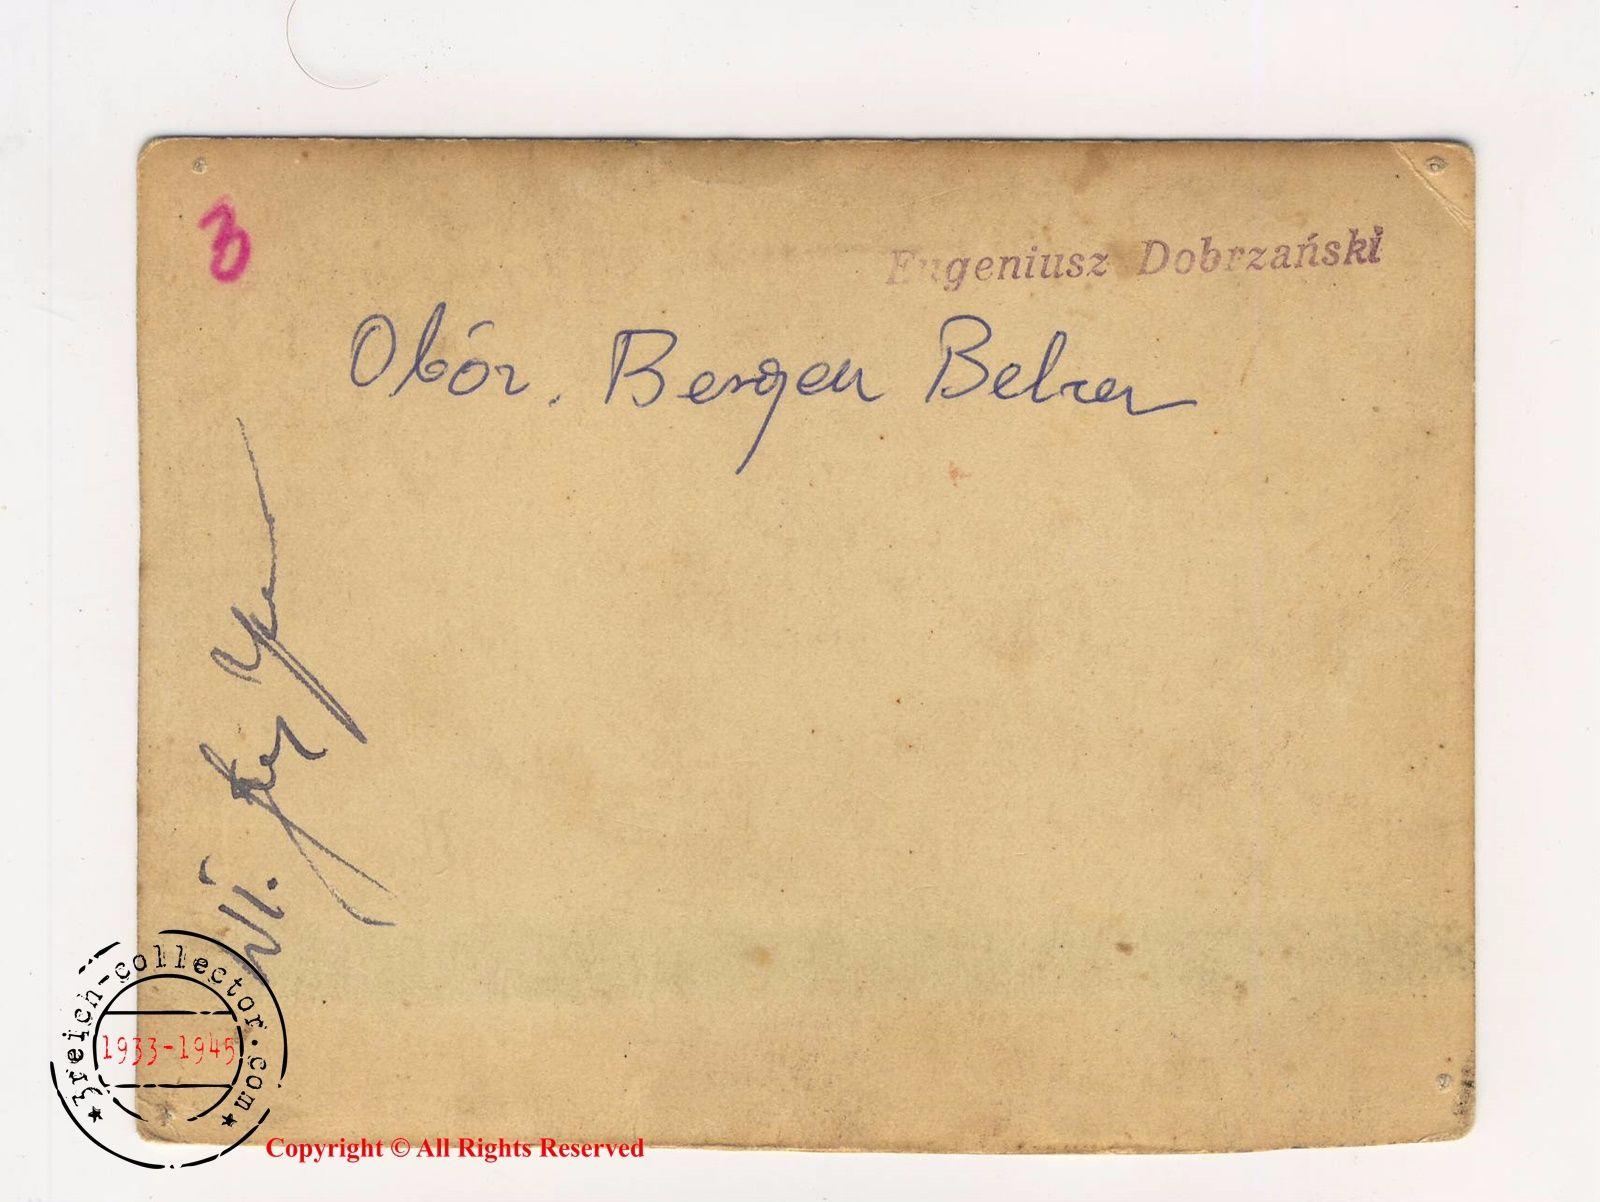 Eugeniusz Dobrzański
Obóz. Bergen Belzen
3reich-collector.com
1933-1945
Copyright © All Rights Reserved